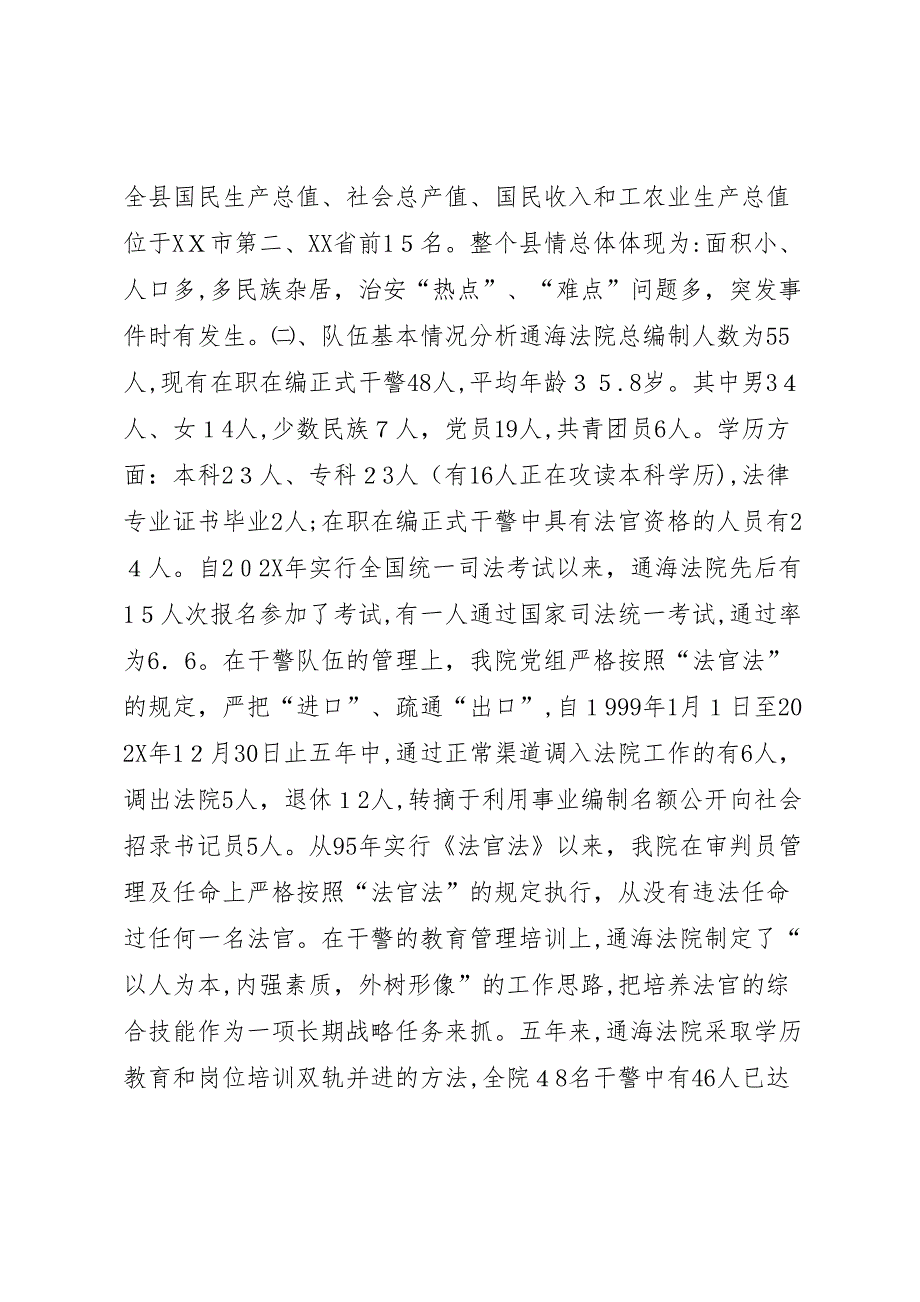 全县国民生产总值、社会总产值、国民收入和工农业生产总值
位于XX市第二、XX省前15名。整个县情总体体现为:面积小、
人口多,多民族杂居，治安“热点”、“难点”问题多，突发事
件时有发生。㈡、队伍基本情况分析通海法院总编制人数为55
人,现有在职在编正式干警48人,平均年龄３５.8岁。其中男3４
人、女１4人,少数民族７人，党员19人,共青团员6人。学历方
面：本科2３人、专科２3人（有16人正在攻读本科学历),法律
专业证书毕业2人;在职在编正式干警中具有法官资格的人员有2
４人。自2０2X年实行全国统一司法考试以来，通海法院先后有
1５人次报名参加了考试,有一人通过国家司法统一考试,通过率
为6．6。在干警队伍的管理上，我院党组严格按照“法官法”
的规定，严把“进口”、疏通“出口”,自１999年1月１日至20
2X年1２月30日止五年中,通过正常渠道调入法院工作的有6人，
调出法院5人，退休１2人,转摘于利用事业编制名额公开向社会
招录书记员5人。从95年实行《法官法》以来，我院在审判员管
理及任命上严格按照“法官法”的规定执行，从没有违法任命
过任何一名法官。在干警的教育管理培训上,通海法院制定了“
以人为本,内强素质，外树形像”的工作思路,把培养法官的综
合技能作为一项长期战略任务来抓。五年来,通海法院采取学历
教育和岗位培训双轨并进的方法,全院４8名干警中有46人已达